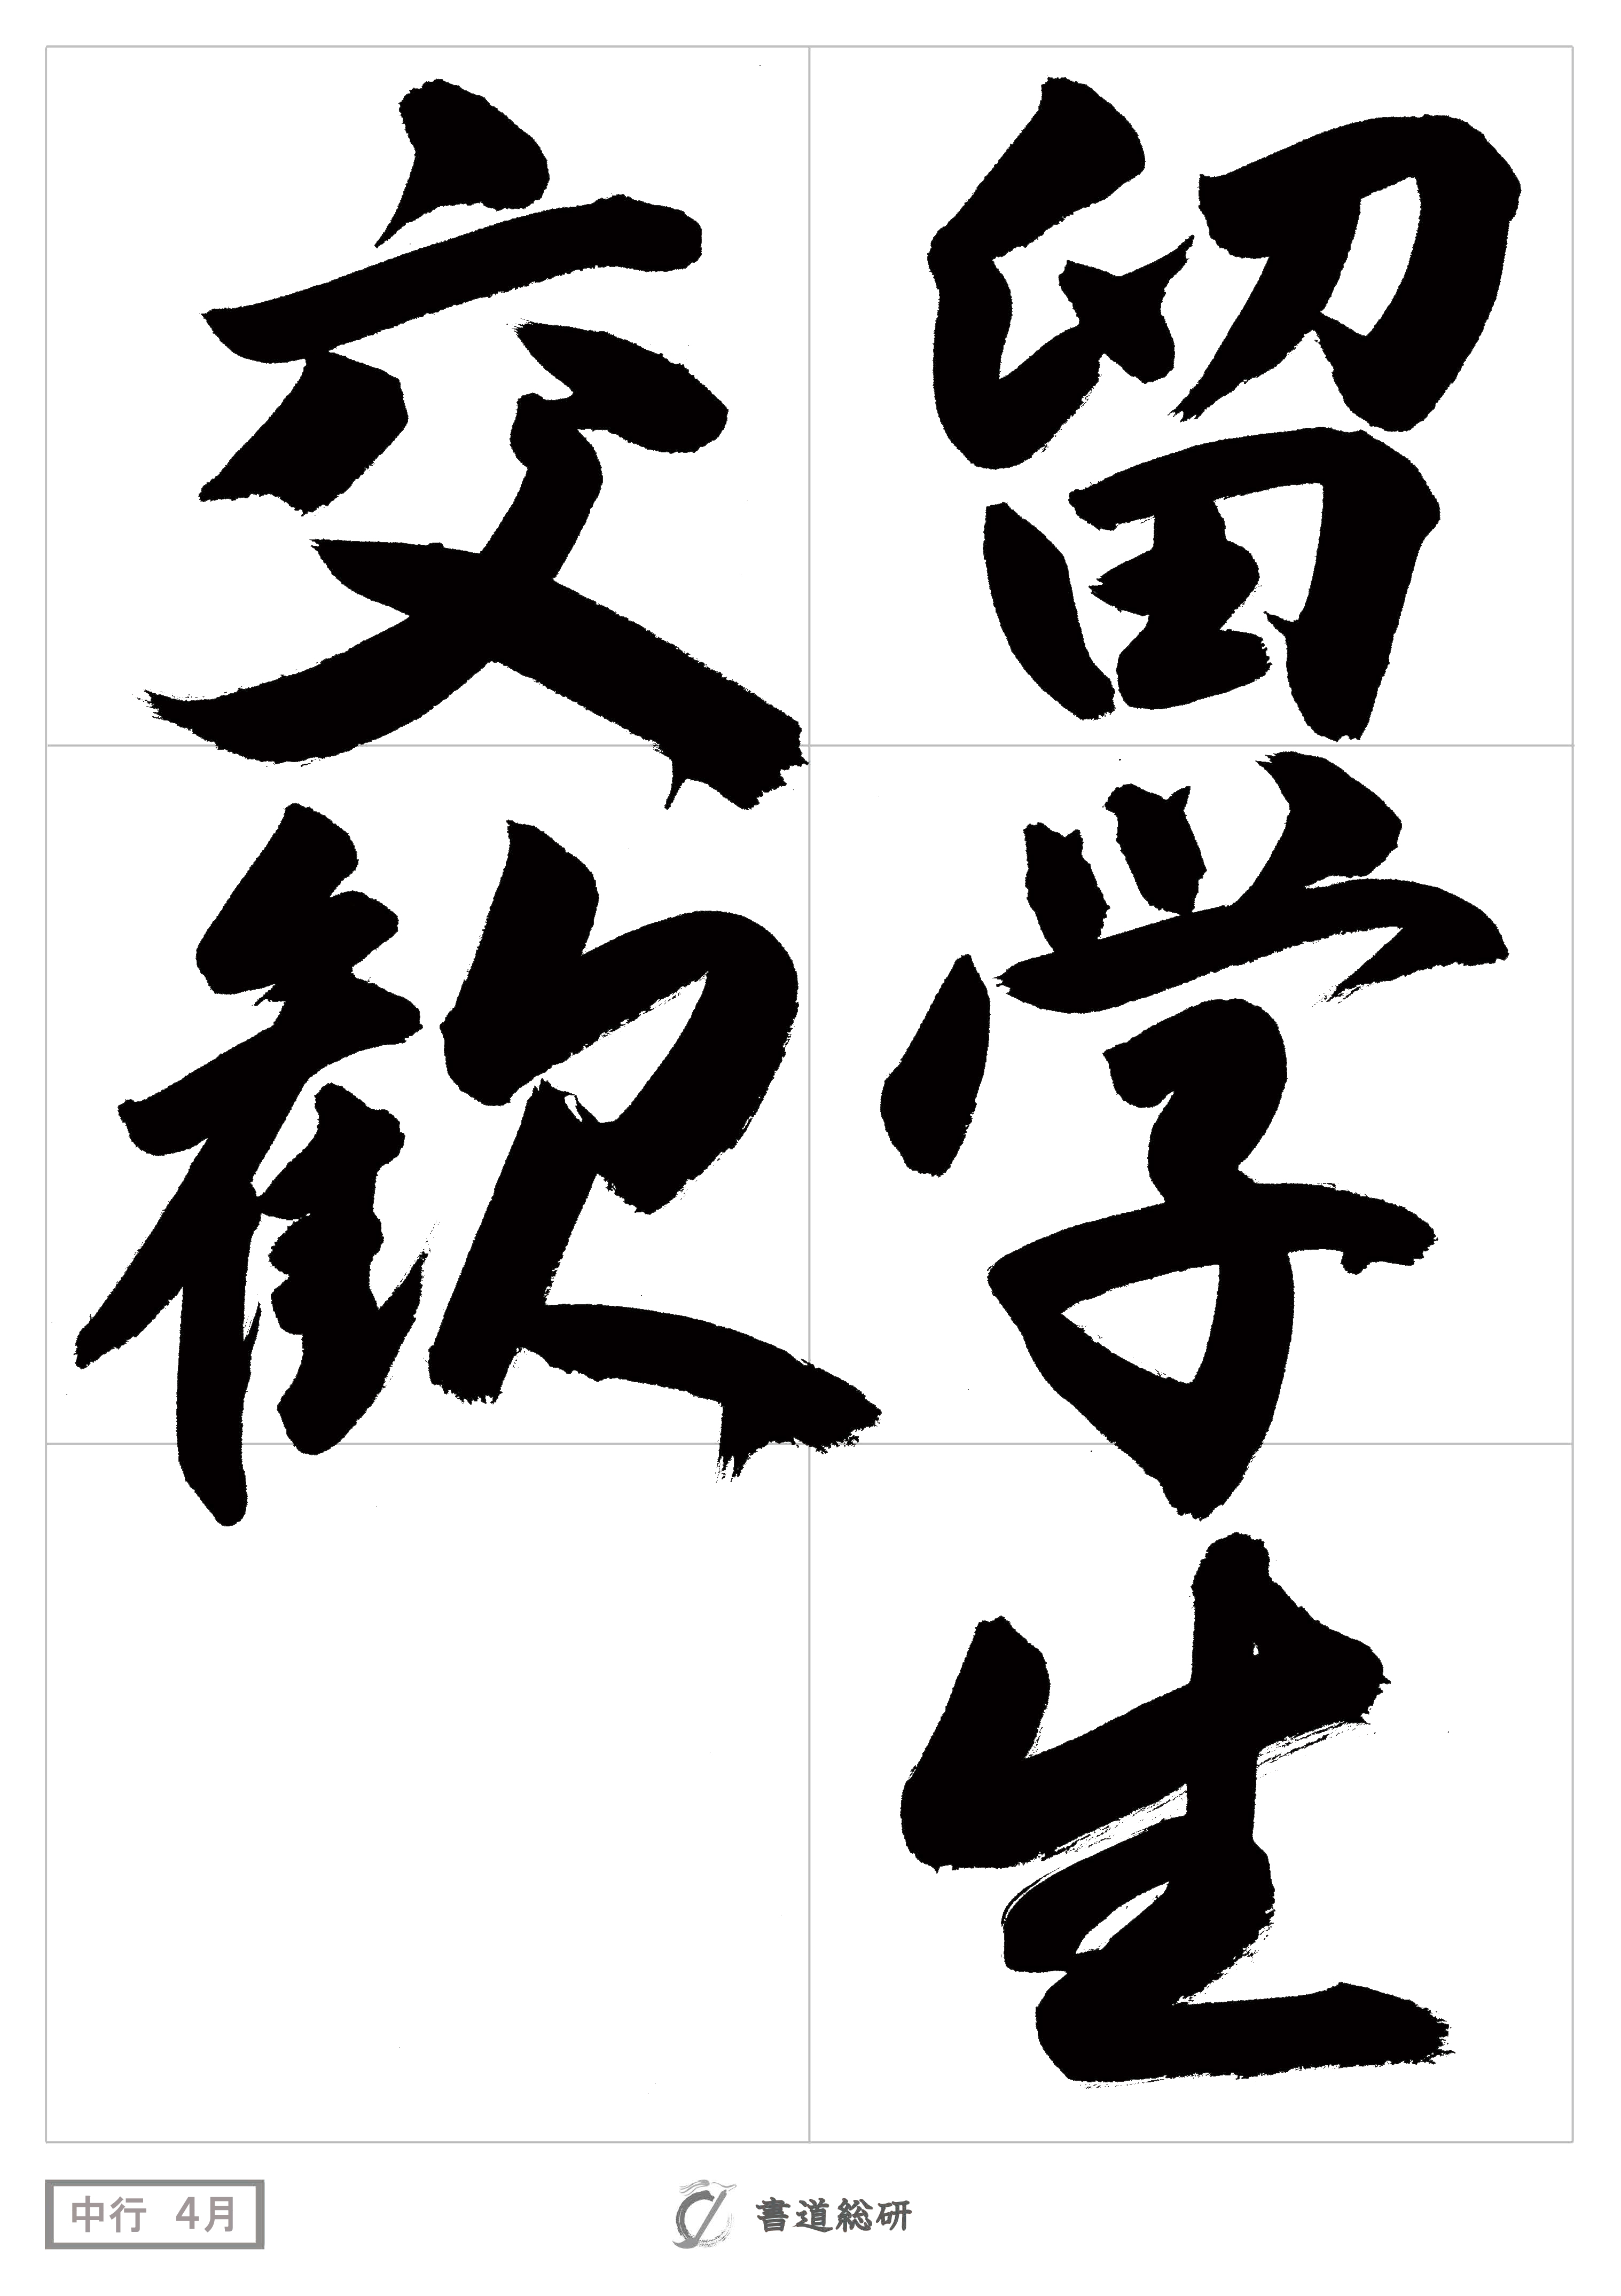 留学生
交歓
中行 4月
書道総研